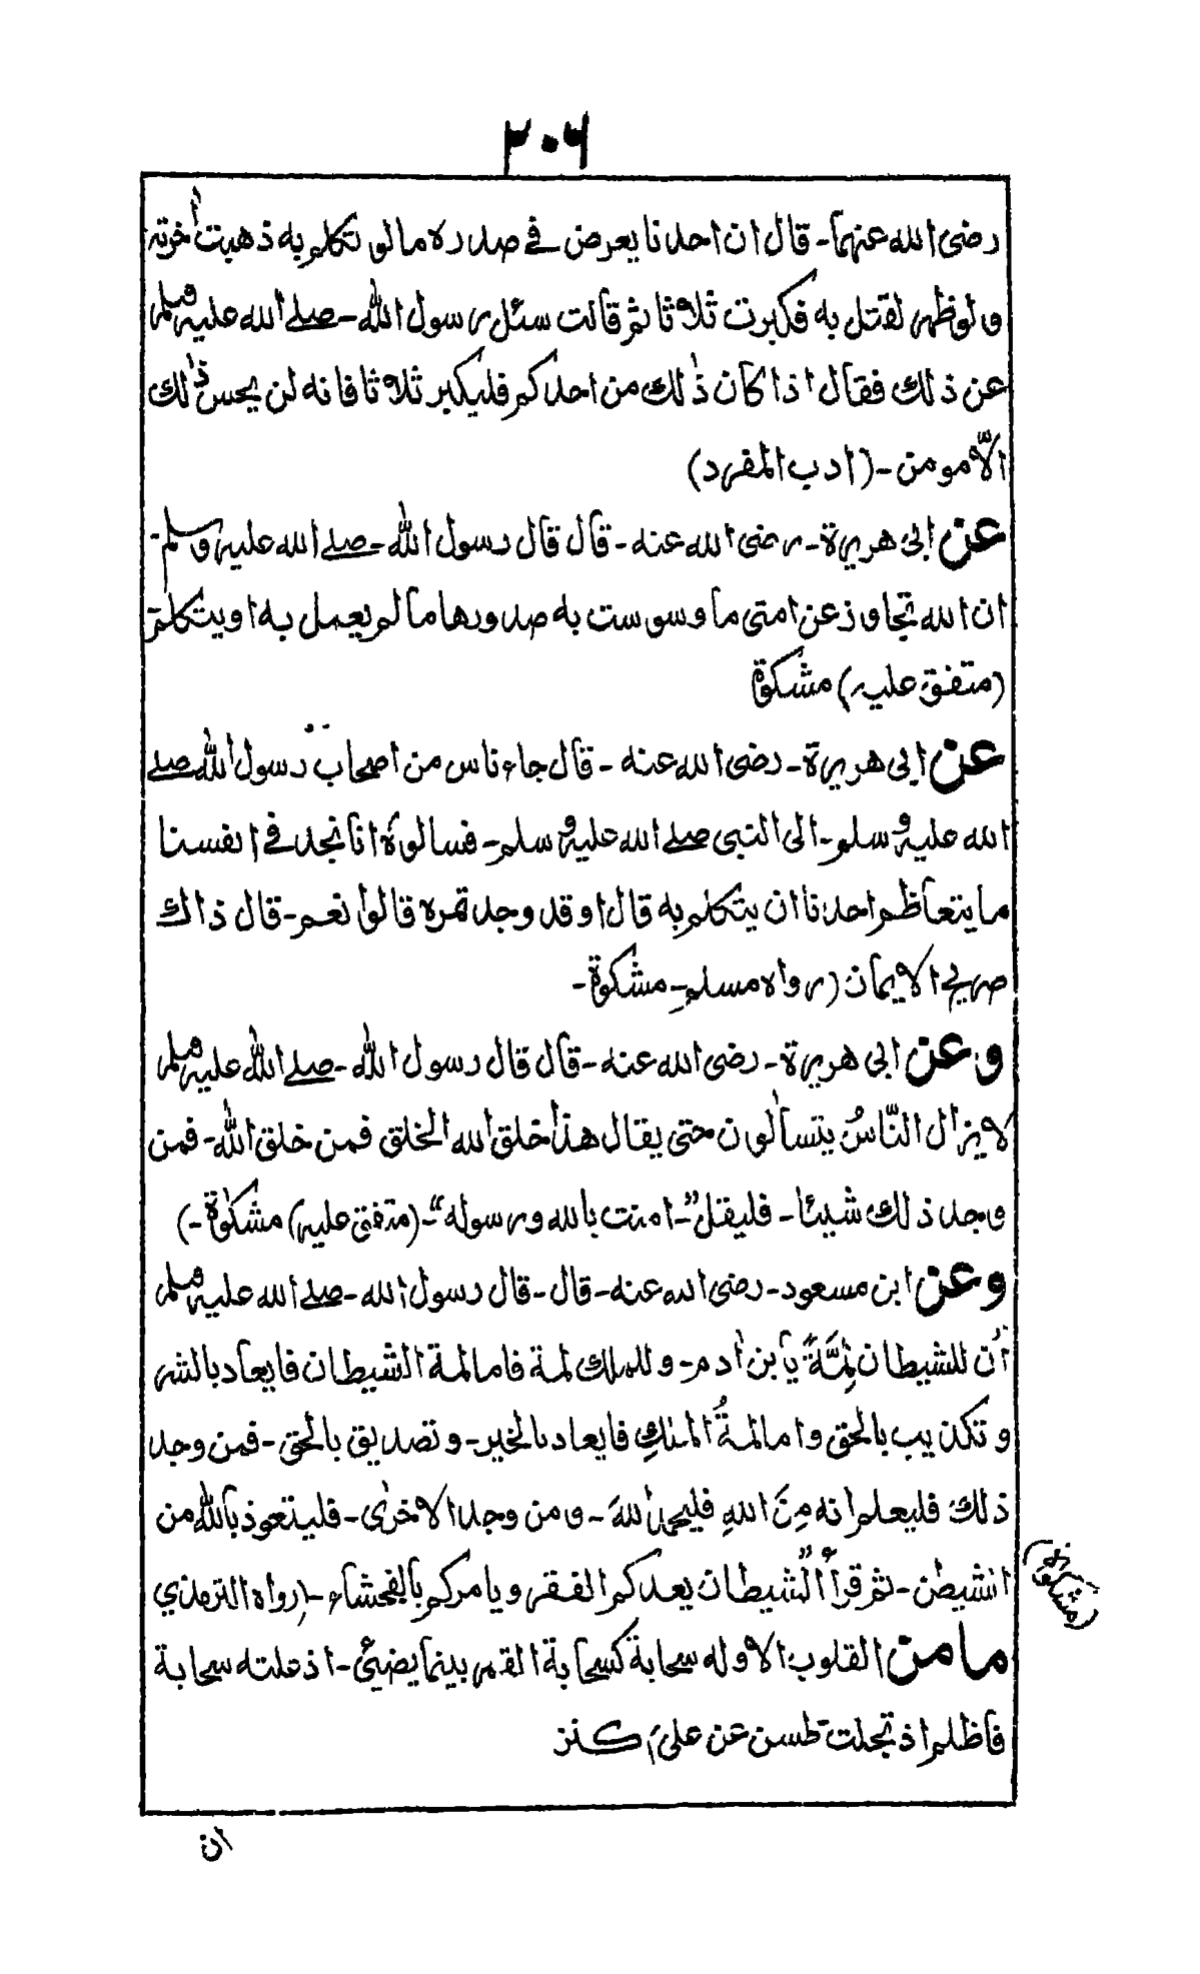 ۲۰۶
رضی الله عنهما۔ قال ان احدنا یعرض فے صدره مالو تکلم به ذهبت اٰخرته
ولو ظهر لقتل به فکبرت ثلاثا ثم قالت سئل رسول اللّٰه۔ صلے الله علیه وسلم
عن ذلك فقال اذا کان ذٰلك من احدکم فلیکبر ثلاثا فانه لن یحس ذٰلك
الّا مومن۔ (ادب المفرد)
عن ابی هریرة۔ رضی الله عنه۔ قال قال رسول اللّٰه۔ صلے الله علیه وسلم۔
ان الله تجاوز عن امتی ما وسوست به صدورها مالم یعمل به او یتکلم۔
(متفق علیه) مشکوة
عن ابی هریرة۔ رضی الله عنه۔ قال جاء ناس من اصحاب رسول اللّٰه صلے
الله علیه وسلم۔ الی النبی صلے الله علیه وسلم۔ فسالوه انا نجد فے انفسنا
ما یتعاظم احدنا ان یتکلم به قال او قد وجدتمره قالوا نعم۔ قال ذاك
صریح الایمان (رواه مسلم۔ مشکوة۔
وعن ابی هریرة۔ رضی الله عنه۔ قال قال رسول اللّٰه۔ صلے اللّٰه علیه وسلم
لا یزال النّاسُ یتسألون حتی یقال هذا خلق الله الخلق فمن خلق اللّٰه۔ فمن
وجد ذلك شیئا۔ فلیقل”۔ امنت بالله ورسوله“۔ (متفق علیه) مشکوٰة۔)
وعن ابن مسعود۔ رضی الله عنه۔ قال۔ قال رسول الله۔ صلے الله علیه وسلم
اُن للشیطان لِمَّةً یا بن اٰدم۔ وللملك لمة فاما لمة الشیطان فایعاد بالشر
وتکذیب بالحق واما لمةُ الملكِ فایعاد بالخیر۔ وتصدیق بالحق۔ فمن وجد
ذلك فلیعلم انه مِنَ اللهِ فلیحمد اللّٰهَ۔ ومن وجد الاخرٰی۔ فلیتعوذ باللّٰه من
الشیطٰن۔ ثم قرأ ”الشیطان یعدکم الفقر ویامرکم بالفحشاء۔ (رواه الترمذی
(مشکوة)
مامن القلوب الا وله سحابة کسحابة القمر بینما یضیئ۔ اذ علته سحابة
فاظلم اذ تجلت طسن عن علیؓ کنز
ان